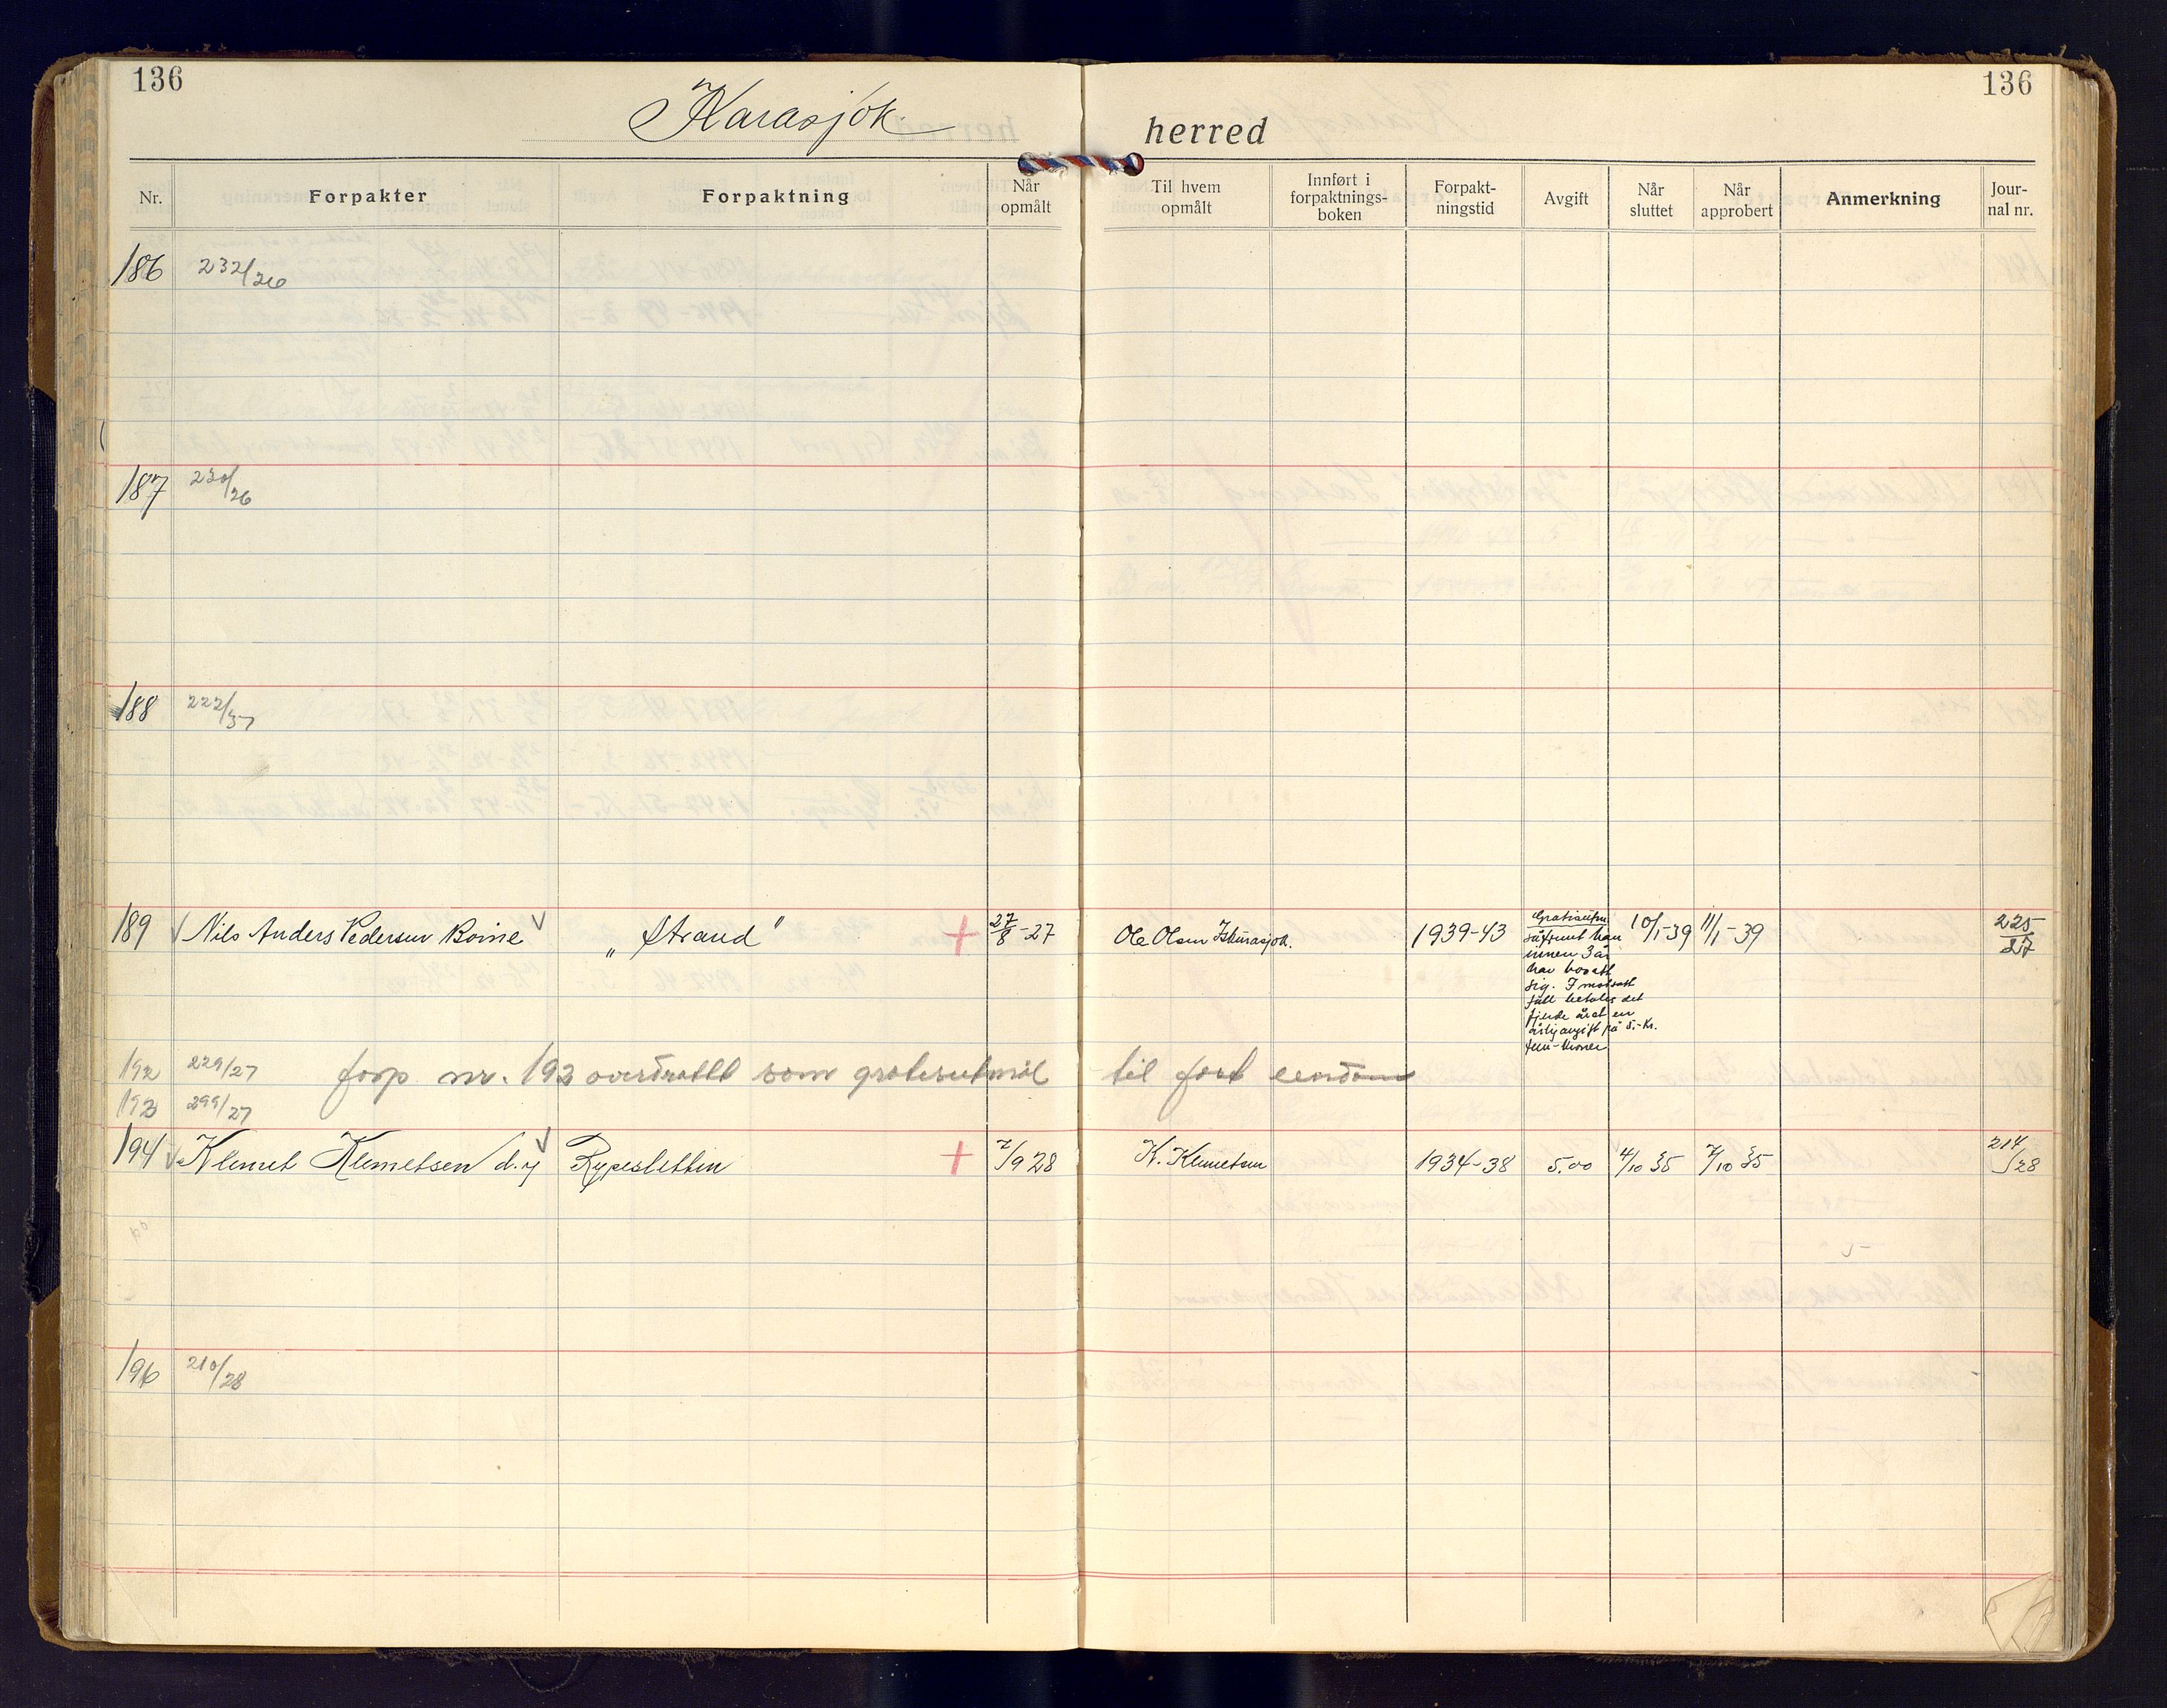 136
136
Karasjok herred
Nr.
Forpakter
Forpaktning
Når opmålt
Til hvem opmålt
Innført i forpaktnings-boken
Forpakt-ningstid
Avgift
Når sluttet
Når approbert
Anmerkning
Jour-nal nr.
186 232/26
187 230/26
188 222/37
189 Nils Anders Pedersen Boine "Strand" + 27/8-27 Ole Olsen Iskurasjok. 1939-43 10/1-39 11/1-39 225/27
såfremt han
innen 3 år
har bosatt
sig. I motsatt
fall betales det
fjerde året en
årlig avgift på 5.- kr.
fem - kroner
192 229/27 forp nr. 193 overdratt som gratisutmål til fast eiendom
193 299/27
194 Klemet Klemetsen d.y. Rypesletten + 7/9 28 K. Klemetsen 1934-38 5.00 4/10 35 7/10 35 214/28
196 210/28